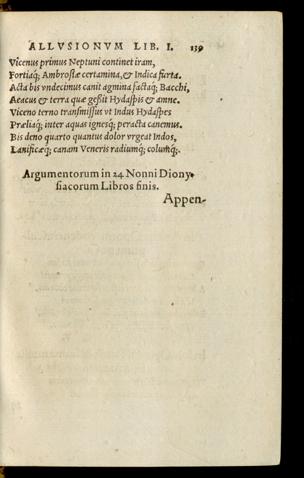 ALLVSIONVM LIB. I. 139
Vicenus primus Neptuni continet iram,
Fortiaq́; Ambrosiæ certamina, & Indica furta.
Acta bis vndecimus canit agmina factaq́; Bacchi,
Aeacus & terra quæ geßit Hydaspis & amne.
Viceno terno transmissus vt Indus Hydaspes
Præliaq́; inter aquas ignesq́; peracta canemus.
Bis deno quarto quantus dolor vrgeat Indos,
Lanificæq́; canam Veneris radiumq́; columq́;.
Argumentorum in 24 Nonni Diony-
siacorum Libros finis.
Appen-